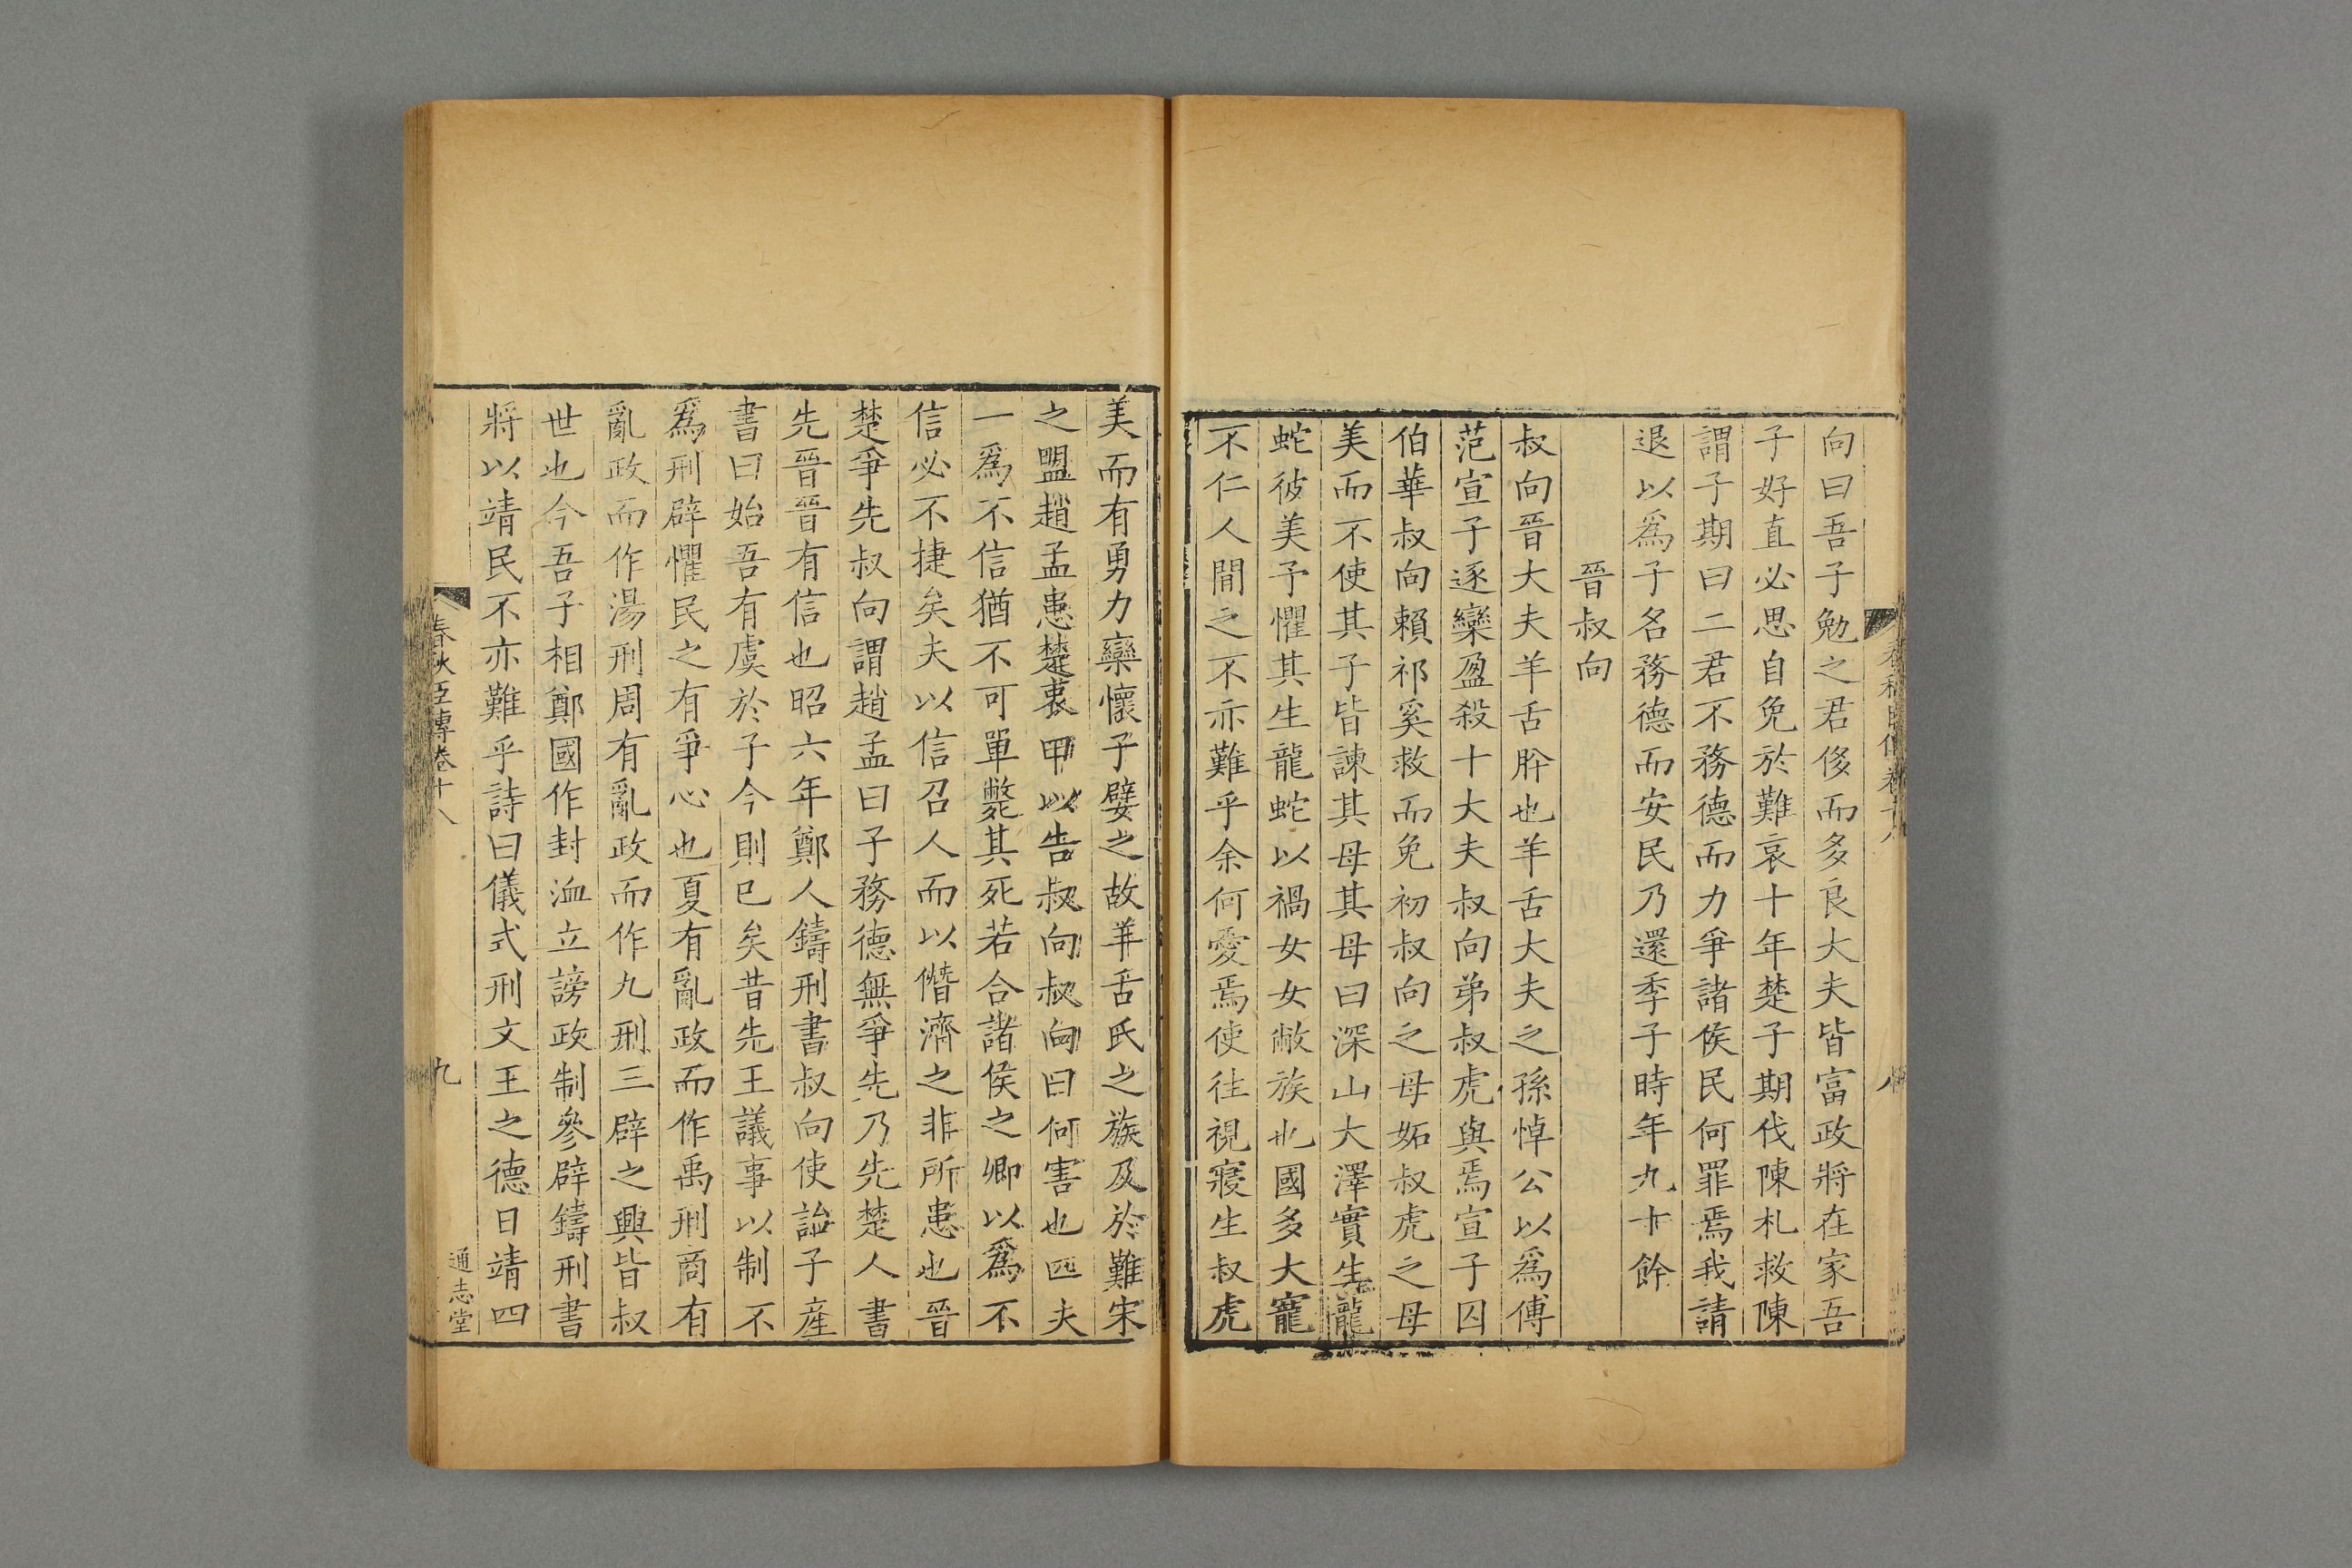 向曰吾子勉之君侈而多良大夫皆富政將在家吾
子好直必思自免於難哀十年楚子期伐陳札救陳
謂子期曰二君不務德而力爭諸侯民何罪焉我請
退以爲子名務德而安民乃還季子時年九十餘
晉叔向
叔向晉大夫羊舌肸也羊舌大夫之孫悼公以爲傅
范宣子逐欒盈殺十大夫叔向弟叔虎與焉宣子囚
伯華叔向賴祁奚救而免初叔向之母妬叔虎之母
美而不使其子皆諫其母其母曰深山大澤實生龍
蛇彼美予懼其生龍蛇以禍女女敝族也國多大寵
不仁人閒之不亦難乎余何愛焉使往視寢生叔虎
春秋臣傳卷十八
八
美而有勇力欒懷子嬖之故羊舌氏之族及於難宋
之盟趙孟患楚衷甲以告叔向叔向曰何害也匹夫
一爲不信猶不可單斃其死若合諸侯之卿以爲不
信必不捷矣夫以信召人而以僭濟之非所患也晉
楚爭先叔向謂趙孟曰子務德無爭先乃先楚人書
先晉晉有信也昭六年鄭人鑄刑書叔向使詒子產
書曰始吾有虞於子今則已矣昔先王議事以制不
爲刑辟懼民之有爭心也夏有亂政而作禹刑商有
亂政而作湯刑周有亂政而作九刑三辟之興皆叔
世也今吾子相鄭國作封洫立謗政制參辟鑄刑書
將以靖民不亦難乎詩曰儀式刑文王之德日靖四
春秋臣傳卷十八
九
通志堂